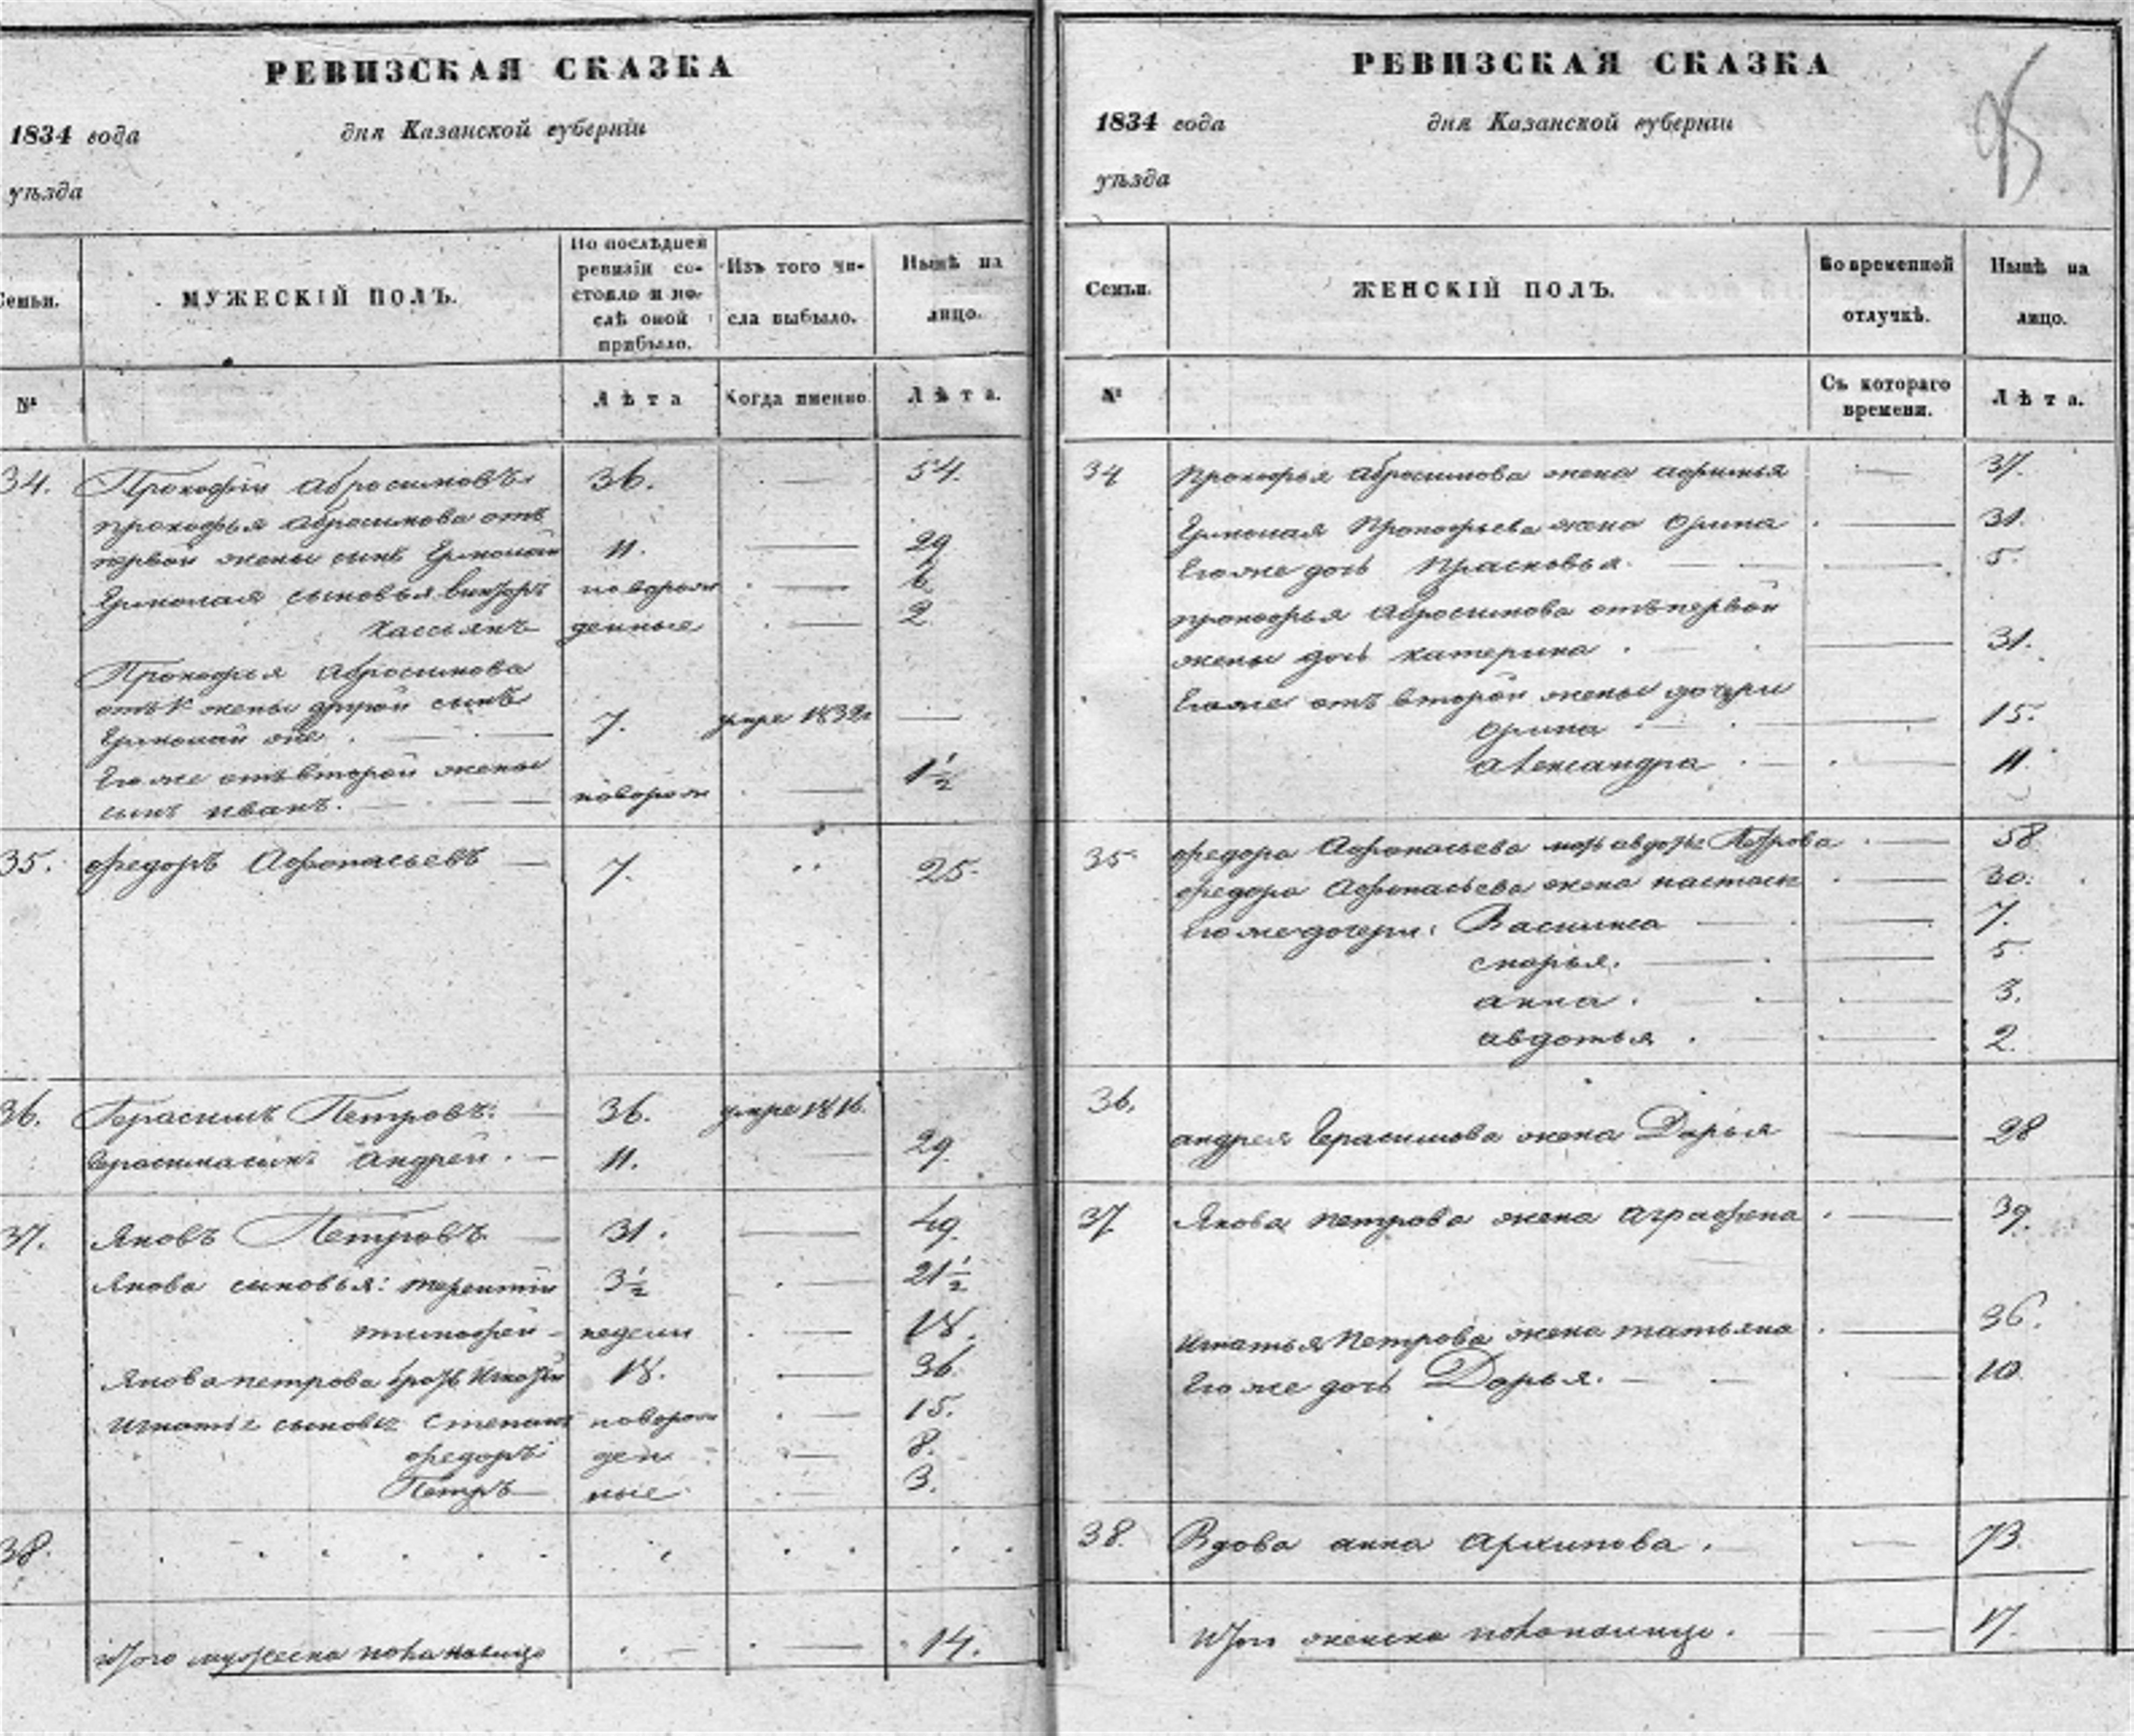 РЕВИЗСКАЯ СКАЗКА
1834 года дня Казанской губерніи
уѣзда
Семьи.
МУЖЕСКІЙ ПОЛЪ.
По послѣдней ревизіи состояло и послѣ оной прибыло.
Изъ того числа выбыло.
Нынѣ на лицо.
№
Лѣта
Когда именно
Лѣта.
34. Прокофій Абросимовъ 36. — 54.
Прокофья Абросимова отъ
первой жены сынъ Ермолай 11. — 29
Ермолая сыновья Викторъ новорож — 6
Кассьянъ денные — 2
Прокофья Абросимова
жены другой сынъ
Ермолай 7. умре 1832 —
Его же отъ второй жены
сынъ Иванъ. новорож — 1½
35. Федоръ Афонасьевъ — 7. 25.
36. Герасимъ Петровъ. 36. умре 1816.
Герасима сынъ Андрей. 11. — 29.
37. Яковъ Петровъ 31. — 49.
Якова сыновья: Терентій 3½ — 21½
Тимофей — недели — 18.
Якова Петрова братъ Игнатій 18. — 36
сыновья Степанъ новорож — 15.
Федоръ ден — 8.
Петръ ные — 3.
38.
Итого мужеска пола налицо — 14.
РЕВИЗСКАЯ СКАЗКА
95
1834 года дня Казанской губерніи
уѣзда
Семьи.
ЖЕНСКІЙ ПОЛЪ.
Во временной отлучкѣ.
Нынѣ на лицо.
№
Съ котораго времени.
Лѣта.
34 Прокофья Абросимова жена Афимья — 37.
Ермолая Прокофьева жена Орина — 31.
Его же дочь Прасковья. — 5.
Прокофья Абросимова отъ первой
жены дочь Катерина — 31.
Его же отъ второй жены дочери
Орина — 15.
Александра — 11.
35 Федора Афонасьева мать Авдотья Петрова — 58.
Федора Афонасьева жена Настасья — 30.
Его же дочери: Василиса — 7.
— 5
Анна — 3.
Авдотья — 2.
36. Андрея Герасимова жена Дарья — 28
37 Якова Петрова жена Аграфена — 39.
Игнатья Петрова жена Татьяна — 36.
Его же дочь Дарья. — 10.
38. Вдова Анна Архипова. — 73.
Итого женска пола налицо. — 17.